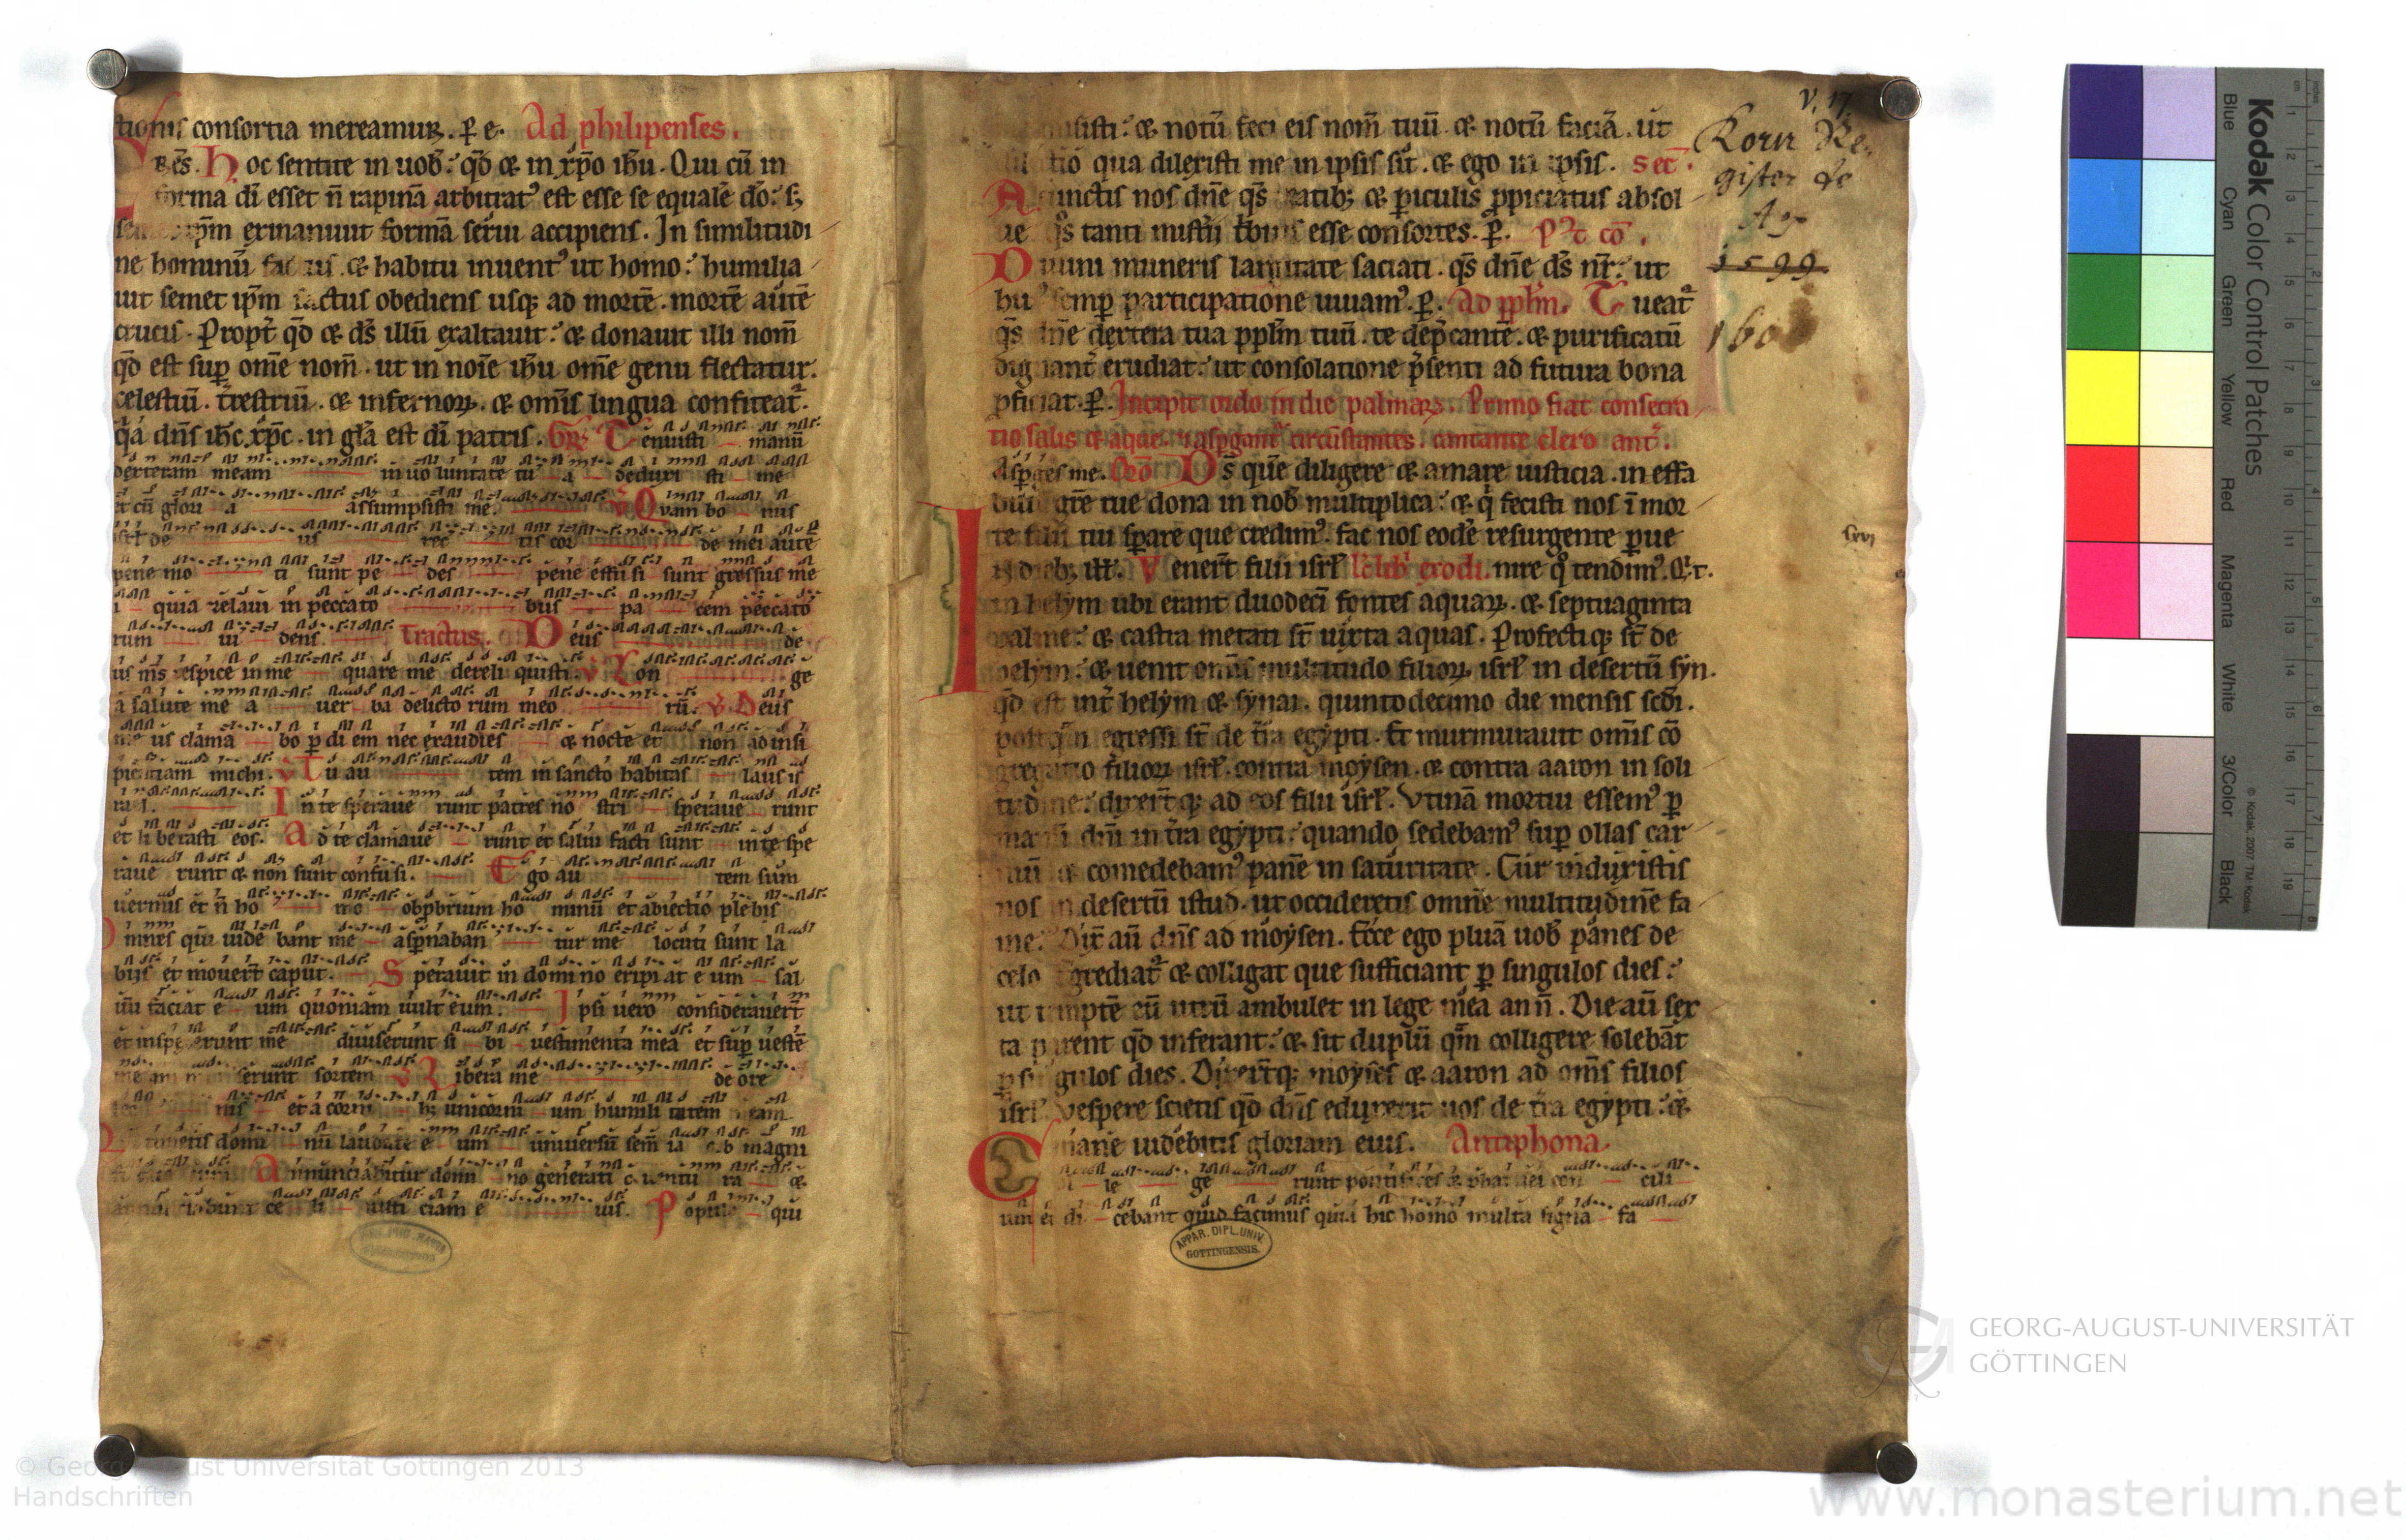 tionis consortia mereamur. p̄ e. Ad philipenses.
Fr̄es. Hoc sentite in uob̄: qd̄ & in xp̄o ih̄u. Qui cū in
forma dī esset n̄ rapinā arbitrat᾽ est esse se equalē dō: s;
ip̄m exinaniuit formā serui accipiens. In similitudi
ne hominū factus & habitu inuent᾽ ut homo: humilia
uit semet ip̄m factus obediens usq; ad mortē. mortē autē
crucis. Propt̄ qd̄ & ds̄ illū exaltauit: & donauit illi nom̄
qd̄ est sup̄ om̄e nom̄. ut in noīe ih̄u om̄e genu flectatur.
celestiū. t̄restriū. & infernoꝝ. & om̄is lingua confiteat᾽.
q̄a dn̄s ih̄c xp̄c. in gl̄a est dī patris. Gr̄. Tenuisti manū
dexteram meam in uo luntate tu a deduxi sti me
et cū glori a assumpsisti me. V Quam bo nus
isrl̄ de us rec tis cor de mei autē
pene mo ti sunt pe des pene effu si sunt gressus me
i quia zelaui in peccato bus pa cem peccato
rum ui dens. Tractus. Deus de
us m̄s respice in me quare me dereli quisti. V Lon ge
a salute me a uer ba delicto rum meo rū. V Deus
me us clama bo p̄ di em nec exaudies & nocte et non ad insi
pientiam michi. V Tu au tem in sancto habitas laus is
ra l. In te sperave runt patres no stri sperave runt
et li berasti eos. Ad te clamave runt et salui facti sunt in te spe
rave runt & non sunt confusi. Ego au tem sum
uermis et n̄ ho mo obp̄brium ho minū et abiectio plebis
Omnes qui uide bant me asp̄naban tur me locuti sunt la
biis et mouer̄t caput. Sperauit in domino eripi at e um sal
uū faciat e um quoniam uult eum. Ipsi uero considerauer̄t
et inspexerunt me diuiserunt si bi uestimenta mea et sup̄ uestē
me am serunt sortem V Libera me de ore
nis et a corni b; unicorni um humili tatem
timetis domi nū laudate e um uniuersū sem̄ ia cob magni
Annunciabitur domi no generati o uentu ra &
ce li iusti ciam e ius. Populo qui
& notū feci eis nom̄ tuū & notū faciā. ut
tio qua dilexisti me in ipsis sit. & ego in ipsis. Sec̄.
A cunctis nos dn̄e qs̄ & p̄iculis p̄piciatus absol
ue qs̄ tanti mist̄ii tbuis esse consortes. p̄. P̄t cō.
Diuini muneris largitate saciati. qs̄ dn̄e ds̄ nr̄: ut
hui᾽ semp̄ participatione uiuam᾽. p̄. Ad ppl̄m. Tueat᾽
qs̄ dn̄e dextera tua ppl̄m tuū. te dep̄cantē. & purificatū
dignant̄ erudiat: ut consolatione p̄senti ad futura bona
p̄ficiat. p̄. Incipit ordo in die palmaꝝ. Primo fiat consecra
tio salis & aque. & aspgant᾽ circūstantes. cantante clero ant̄.
Asp̄ges me. Orō Ds̄ quē diligere & amare iusticia. in effa
bilis gr̄e tue dona in nob̄ multiplica: & q̄ fecisti nos ī mor
te filii tui sp̄are que credim᾽. fac nos eodē resurgente p̄ue
In dieb; ill̄. Vener̄t filii isrl̄ Lc̄ lib̄ exodi. nire q᾽ tendim᾽. Q.t.
in helym ubi erant duodecī fontes aquaꝝ. & septuaginta
palme: & castra metati st̄ iuxta aquas. Profectiq; st̄ de
helym: & uenit om̄is multitudo filioꝝ isrl̄ in desertū syn.
qd̄ est int̄ helym & synai. quintodecimo die mensis scdī.
postq̄m egressi st̄ de t̄ra egypti. Et murmurauit om̄is cō
gregatio filioꝝ isrl̄. contra moysen. & contra aaron in soli
tudine: dixer̄tq; ad eos filii isrl̄. Vtinā mortui essem᾽ p̄
manū dn̄i in t̄ra egypti: quando sedebam᾽ sup̄ ollas car
niū & comedebam᾽ panē in saturitate. Cur induxistis
nos in desertū istud. ut occideretis omnē multitudinē fa
me. Dix̄ aū dn̄s ad moysen. Ecce ego pluā uob̄ panes de
celo egrediat᾽ & colligat que sufficiant p̄ singulos dies:
ut temptē eū utrū ambulet in lege mea an n̄. Die aū sex
ta parent qd̄ inferant: & sit duplū qm̄ colligere solebāt
p̄ singulos dies. Dixer̄tq; moyses & aaron ad om̄s filios
isrl̄ vespere scietis qd̄ dn̄s eduxerit uos de t̄ra egypti: &
mane uidebitis gloriam eius. Antiphona
Col le ge runt pontifices & pharisei con cili
um et di cebant quid facimus quia hic homo multa signa fa
V. 17.
Korn Re
gister de
1599
APPAR. DIPL. UNIV.
GOTTINGENSIS.
Kodak Color Control Patches
Blue Cyan Green Yellow Red Magenta White 3/Color Black
© Kodak, 2007 TM: Kodak
cm 1 2 3 4 5 6 7 8 9 10 11 12 13 14 15 16 17 18 19
inches 1 2 3 4 5 6 7 8
GEORG-AUGUST-UNIVERSITÄT
GÖTTINGEN
© Georg-August Universität Göttingen 2013
Handschriften
www.monasterium.net